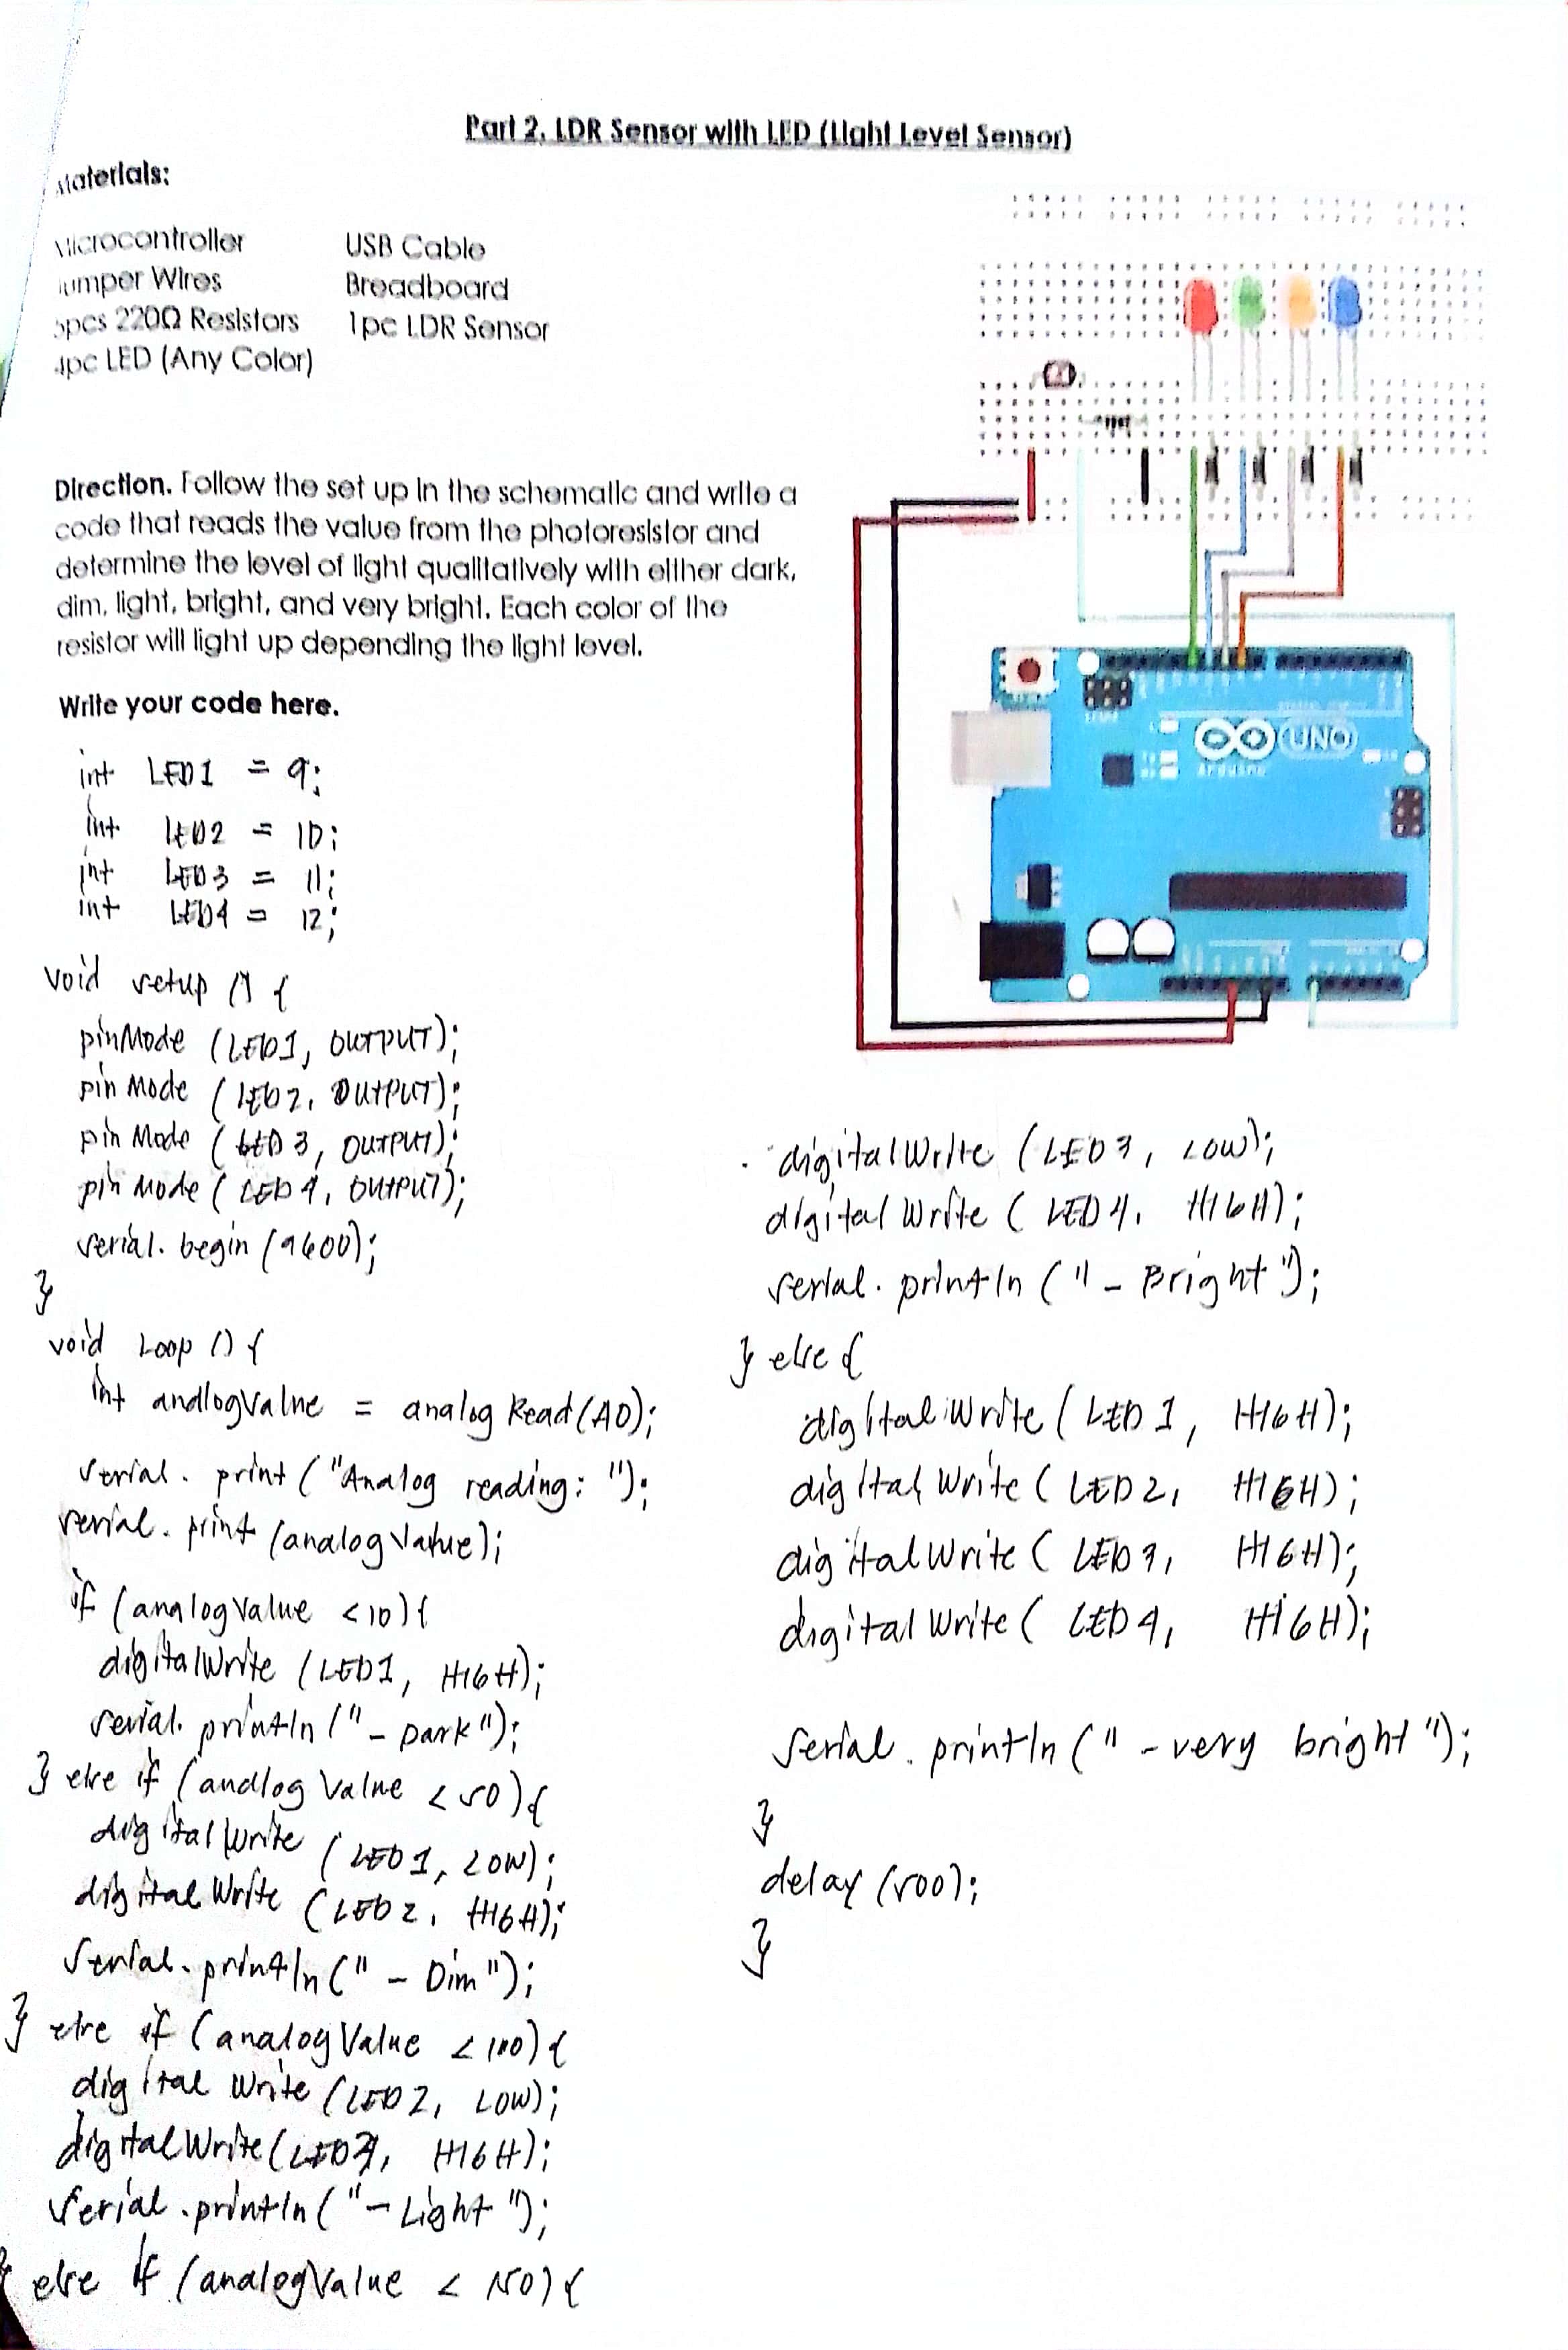 Part 2. LDR Sensor with LED (Light Level Sensor)
Materials:
Microcontroller
Jumper Wires
5pcs 220Ω Resistors
4pc LED (Any Color)
USB Cable
Breadboard
1pc LDR Sensor
Direction. Follow the set up in the schematic and write a
code that reads the value from the photoresistor and
determine the level of light qualitatively with either dark,
dim, light, bright, and very bright. Each color of the
resistor will light up depending the light level.
Write your code here.
UNO
Arduino
int LED1 = 9;
int LED2 = 10;
int LED3 = 11;
int LED4 = 12;
void setup () {
pinMode (LED1, OUTPUT);
pinMode (LED2, OUTPUT);
pinMode (LED3, OUTPUT);
pinMode (LED4, OUTPUT);
serial.begin (9600);
}
void Loop () {
int analogValue = analogRead(A0);
serial.print ("Analog reading: ");
serial.print (analogValue);
if (analogValue <10){
digitalWrite (LED1, HIGH);
serial.println (" - Dark");
} else if (analogValue <50){
digitalWrite (LED1, LOW);
digitalWrite (LED2, HIGH);
Serial.println (" - Dim");
} else if (analogValue <100){
digitalWrite (LED2, LOW);
digitalWrite (LED3, HIGH);
Serial.println ("- Light");
} else if (analogValue < 150){
digitalWrite (LED3, LOW);
digitalWrite (LED4, HIGH);
serial.println (" - Bright");
} else {
digitalWrite (LED1, HIGH);
digitalWrite (LED2, HIGH);
digitalWrite (LED3, HIGH);
digitalWrite (LED4, HIGH);
Serial.println (" - very bright");
}
delay (500);
}